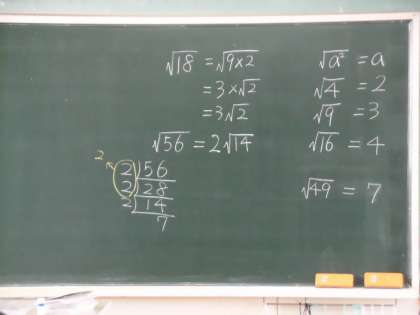 √18 = √9×2
= 3×√2
= 3√2
√56 = 2√14
2
2)56
2)28
2)14
7
√a² = a
√4 = 2
√9 = 3
√16 = 4
√49 = 7